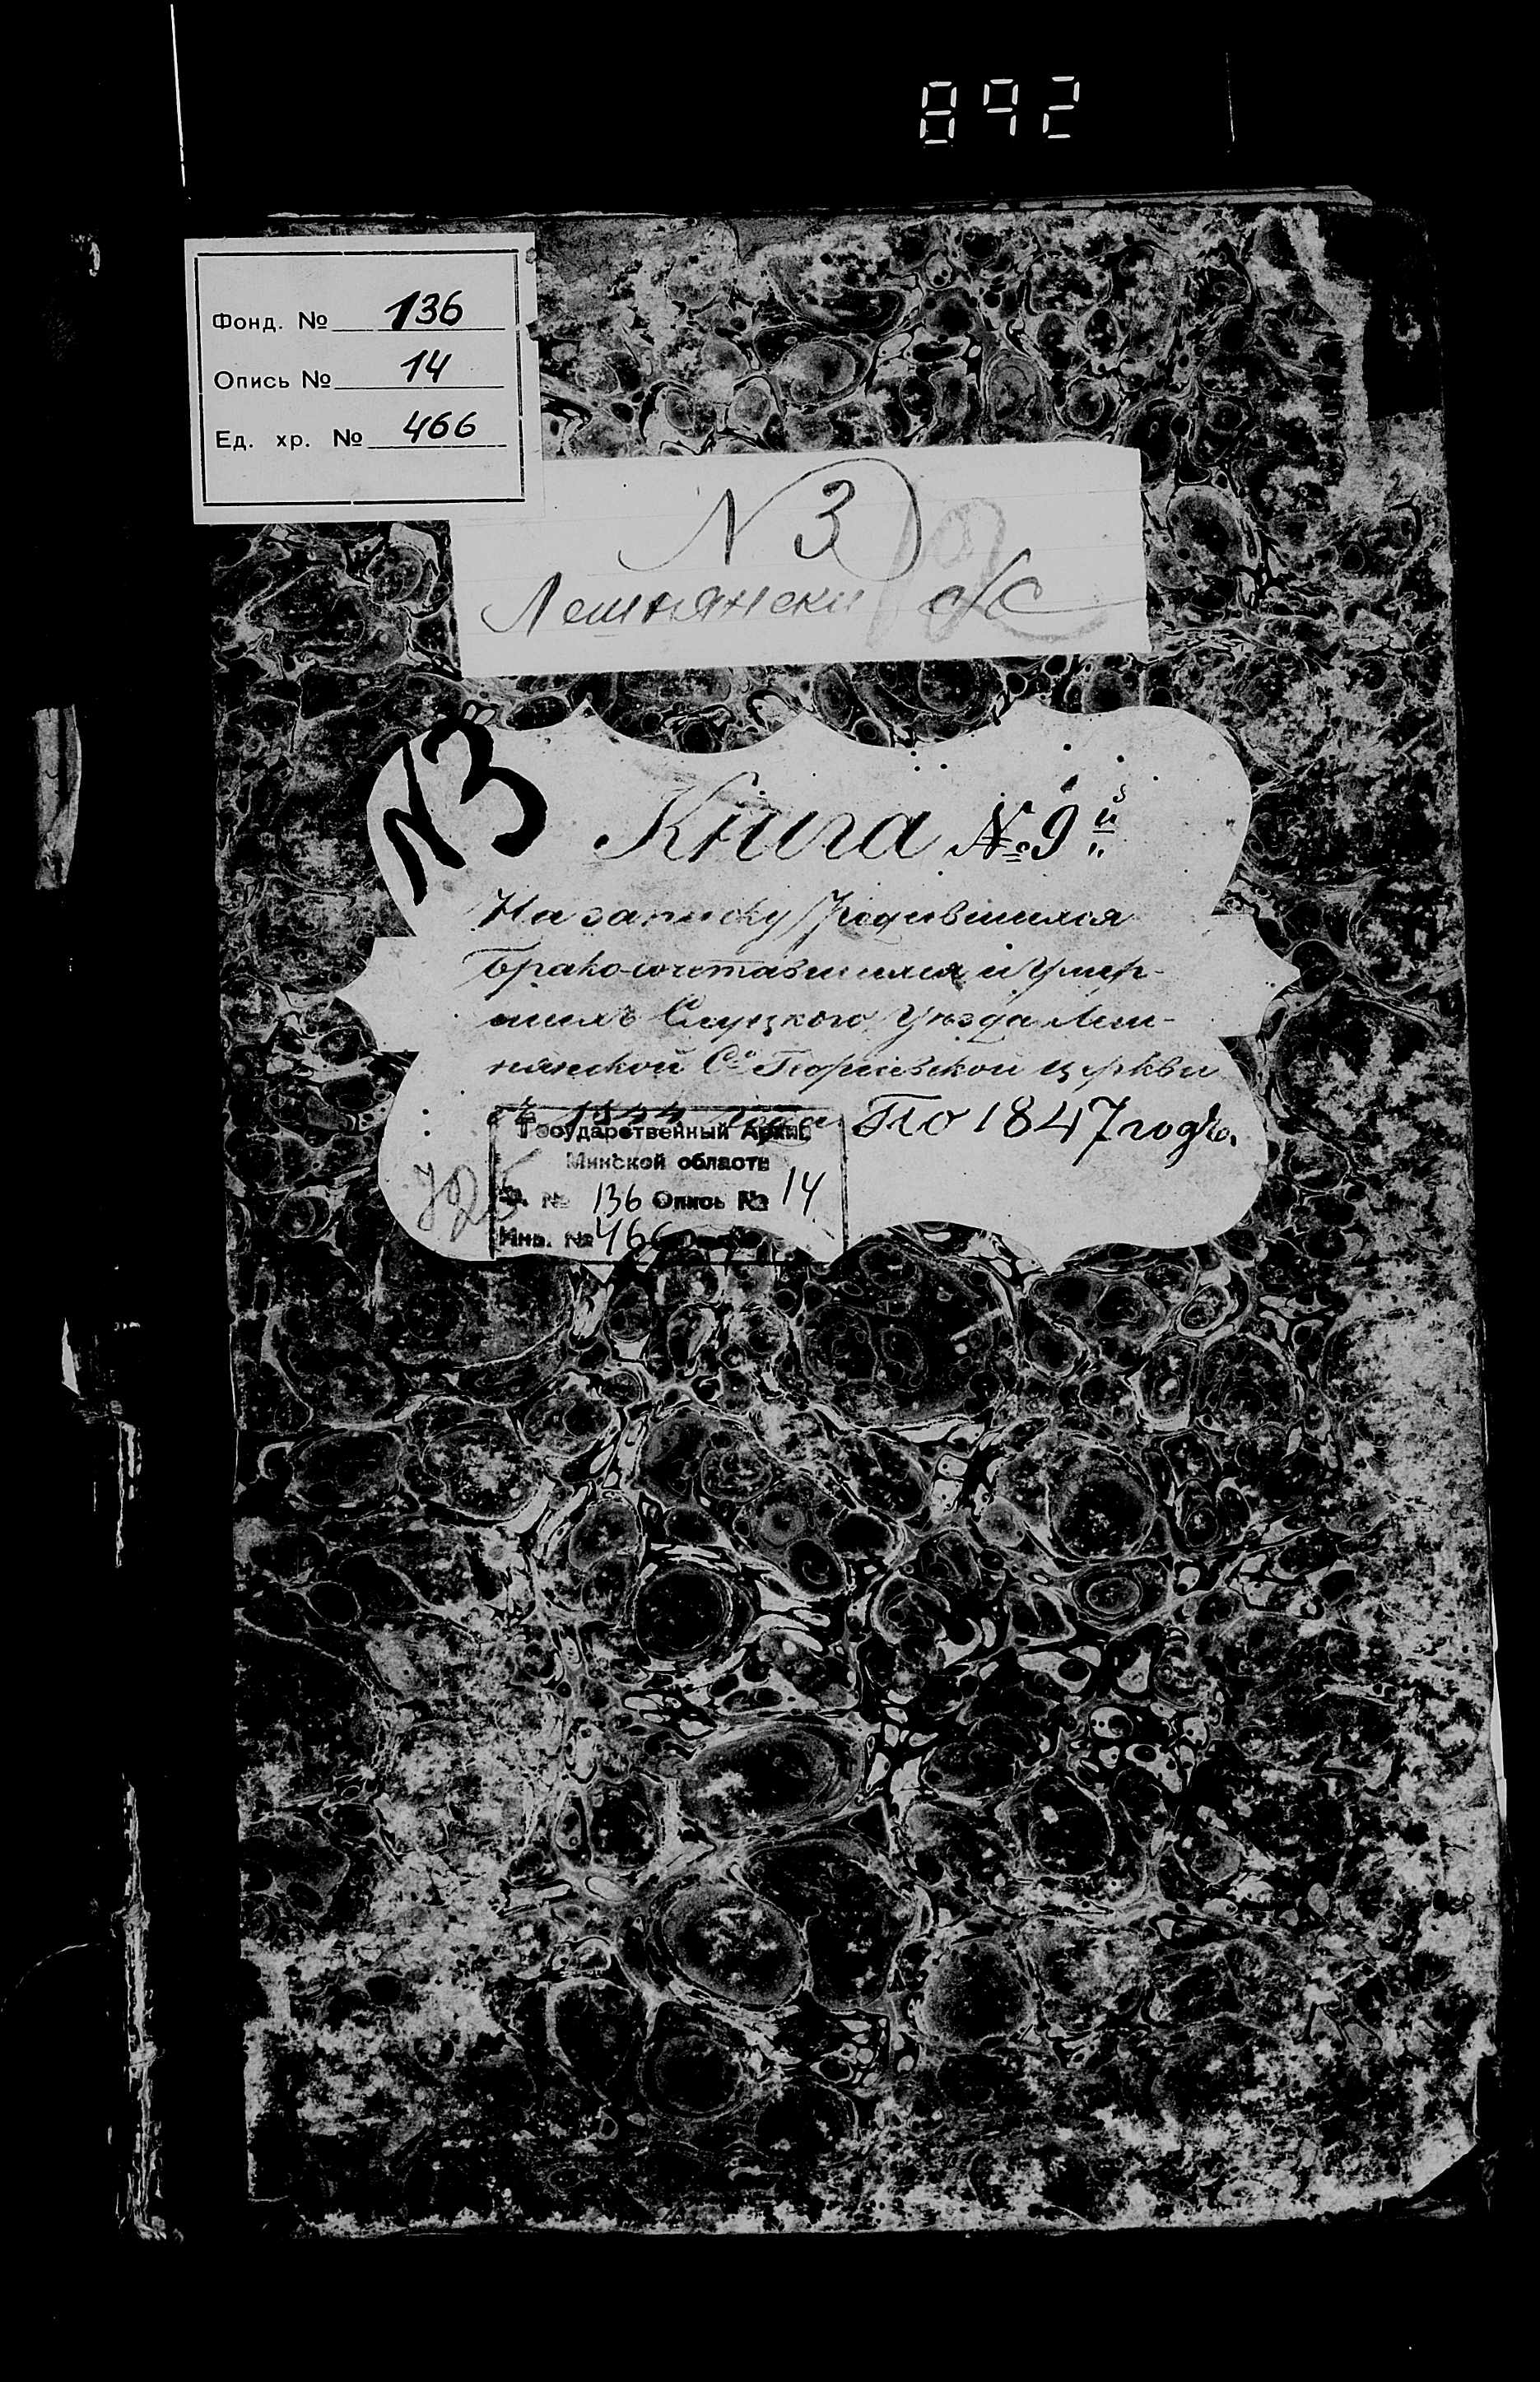 892
Фонд. № 136
Опись № 14
Ед. хр. № 466
N 3
Лешнянски с/с
N3
Книга №9й
На записку Родившихся
Бракосочетавшихся и Умер-
шихъ Слуцкого Уѣзда Леш-
нянской Со Георгіевской церкви
1844 года По 1847 годъ.
Государственный Архив
Минской области
Ф. № 136 Опись № 14
Инв. № 466